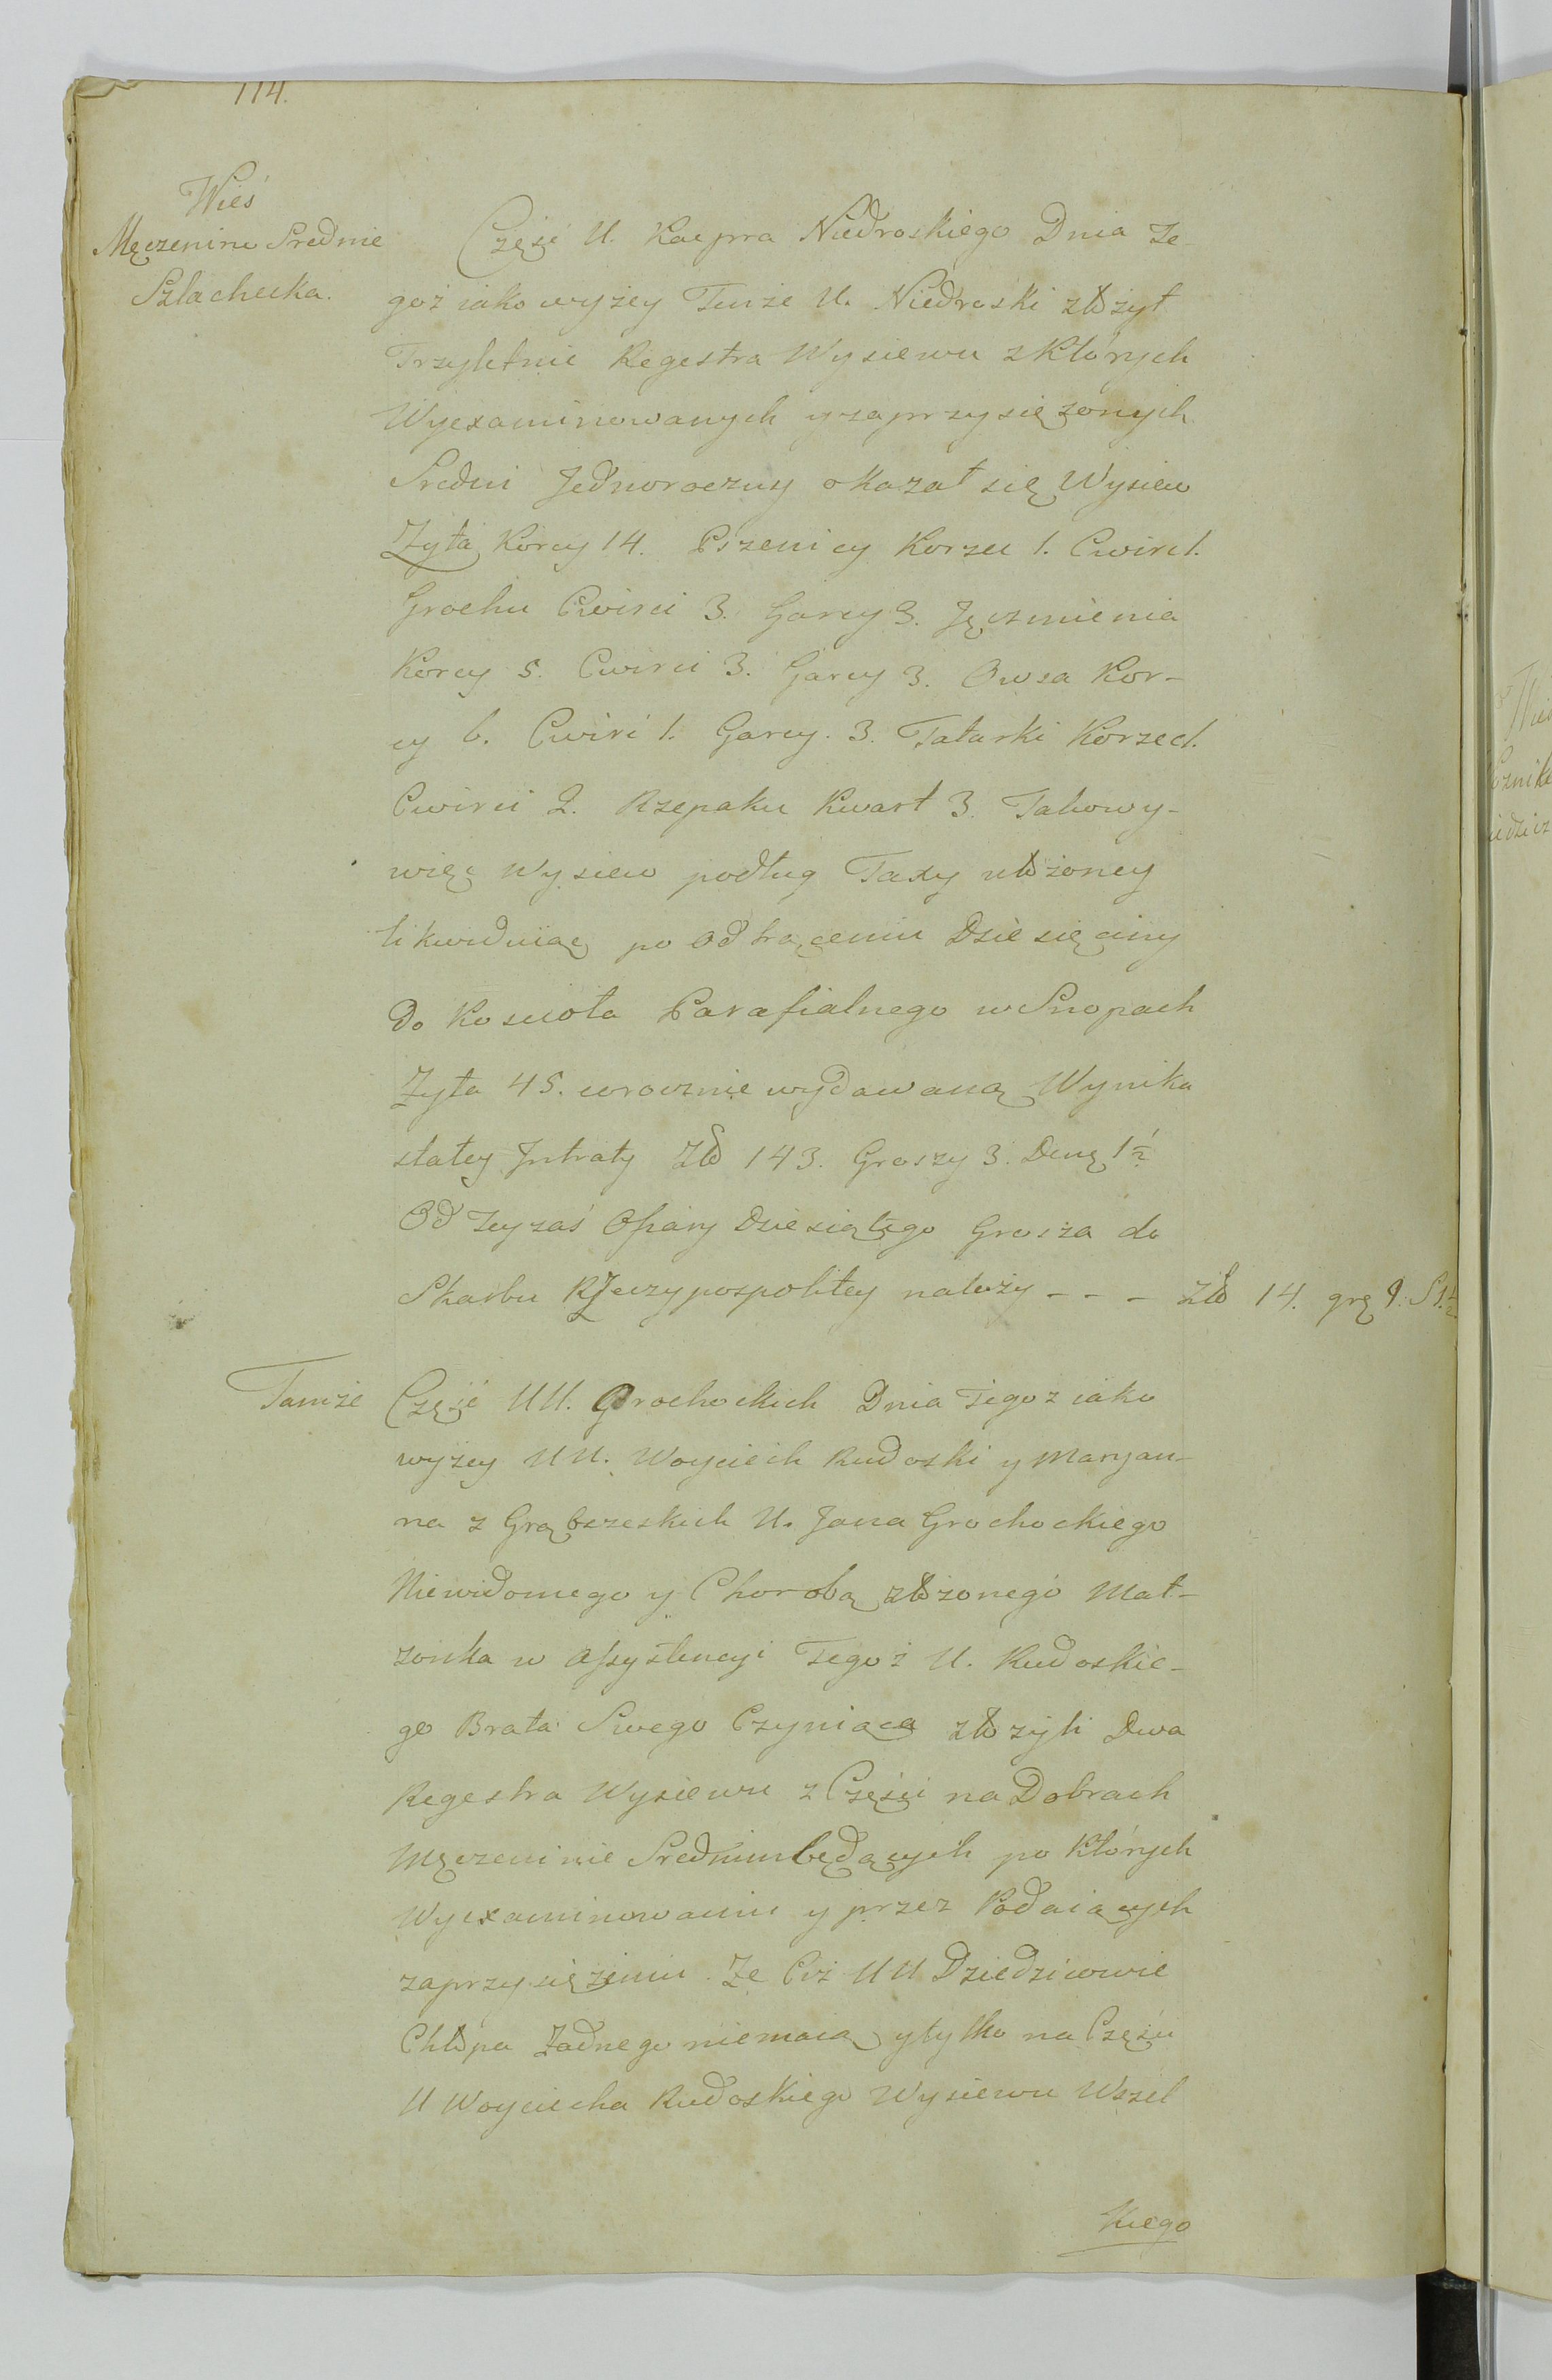 114.
Wieś
Męczenino Srednie
Szlachecka.
Część U. Kacpra Niedroskiego Dnia te
goż iako wyżey Tenże U. Niedroski złożył
Trzyletnie Regestra Wysiewu z których
Wyexaminowanych y zaprzysiężonych
Sredni Jednoroczny okazał się Wysiew
Zyta Korcy 14. Pszenicy Korzec 1. Cwierć 1.
Grochu Cwierci 3. Garcy 3. Jęczmienia
Korcy 5. Cwierci 3. Garcy 3. Owsa Kor-
cy 6. Cwierć 1. Garcy. 3. Tatarki Korzec 1.
Cwierci 2. Rzepaku Kwart 3. Takowy-
więc Wysiew podług Taxy ułożoney
likwiduiąc po odtrąceniu Dziesięciny
Do Koscioła Parafialnego w Snopach
Zyta 45. corocznie wydawaną Wynika
stałey Intraty Zło 143. Groszy 3. Deną 1½
Od tey zaś Ofiary Dziesiątego Grosza do
Skarbu Rzeczypospolitey należy - - - Zło 14. grę 9.
Tamże
Część UU. Grochockich Dnia Tegoz iako
wyżey UU. Woyciech Rudoski y Maryan-
na z Grąbszeskich U. Jana Grochockiego
Niewidomego y Chorobą złożonego Mał-
żonka w Assystencyi Tegoż U. Rudoskie-
go Brata Swego Czyniąca złożyli Dwa
Regestra Wysiewu z Części na Dobrach
Męczeninie Srednim będących po których
Wyexaminowaniu y przez Podaiących
zaprzysiężeniu. Ze Ciż UU Dziedzicowie
Chłopa Żadnego niemaią y tylko na Części
U Woyciecha Rudoskiego Wysiewu Wszel
kiego